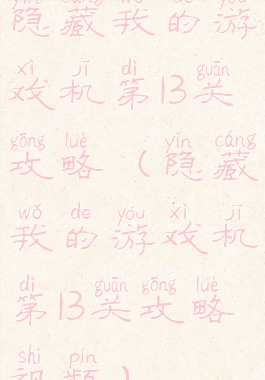 yǐn cáng wǒ de yóu
隐藏我的游
xì jī dì guān
戏机第13关
gōng lüè yǐn cáng
攻略（隐藏
wǒ de yóu xì jī
我的游戏机
dì guān gōng lüè
第13关攻略
shì pín
视频）